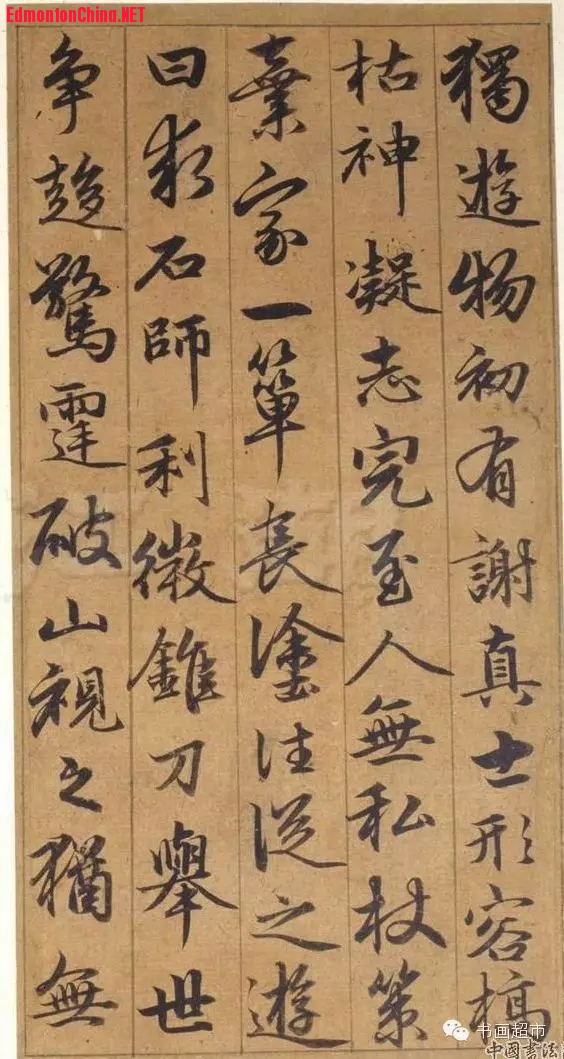 EdmontonChina.NET
獨遊物初有謝真士形容槁
枯神凝志完至人無私杖策
棄家一簞長塗往從之遊
曰求石師利徵錐刀舉世
争趍驚霆破山視之猶無
书画超市
中国書法